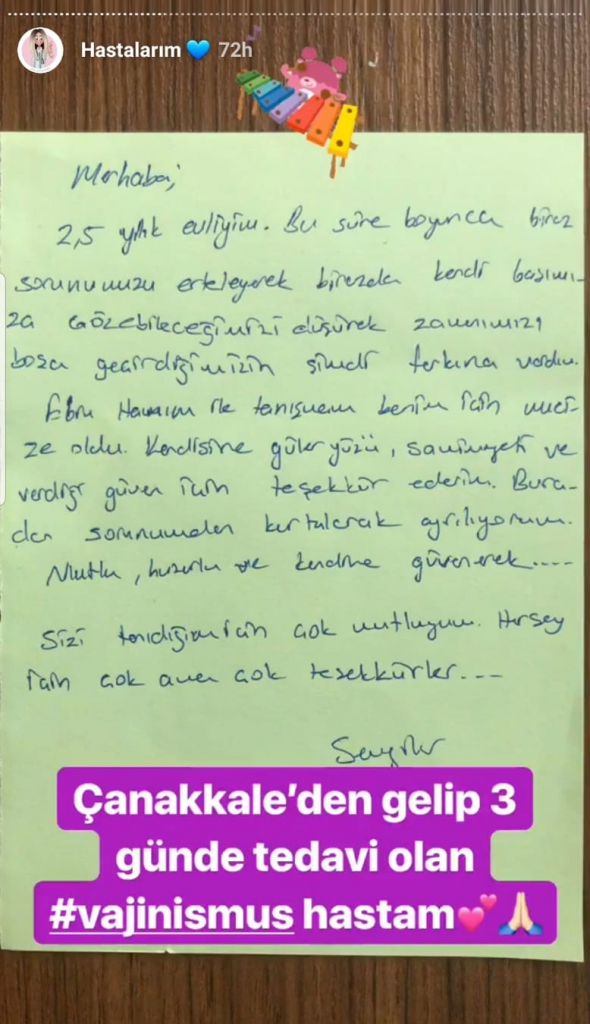 Hastalarım 💙 72h
Merhaba;
2,5 yıllık evliyim. Bu süre boyunca biraz
sorunumuzu erteleyerek birazda kendi başımı-
za çözebileceğimizi düşünerek zamanımızı
boşa geçirdiğimizin şimdi farkına vardım.
Ebru Hanım ile tanışmam benim için muci-
ze oldu. Kendisine güler yüzü, samimiyeti ve
verdiği güven için teşekkür ederim. Bura-
dan sorunumdan kurtularak ayrılıyorum.
Mutlu, huzurlu ve kendime güvenerek....
Sizi tanıdığım için çok mutluyum. Herşey
için çok ama çok teşekkürler...
Sevgiler
Çanakkale’den gelip 3
günde tedavi olan
#vajinismus hastam💕🙏🏻